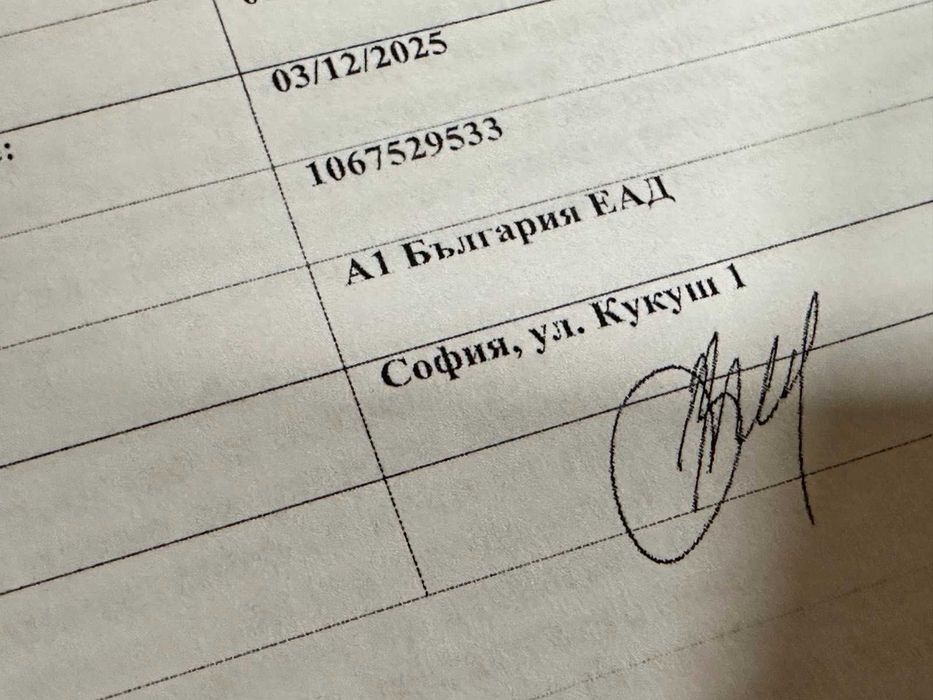 03/12/2025
:
1067529533
А1 България ЕАД
София, ул. Кукуш 1